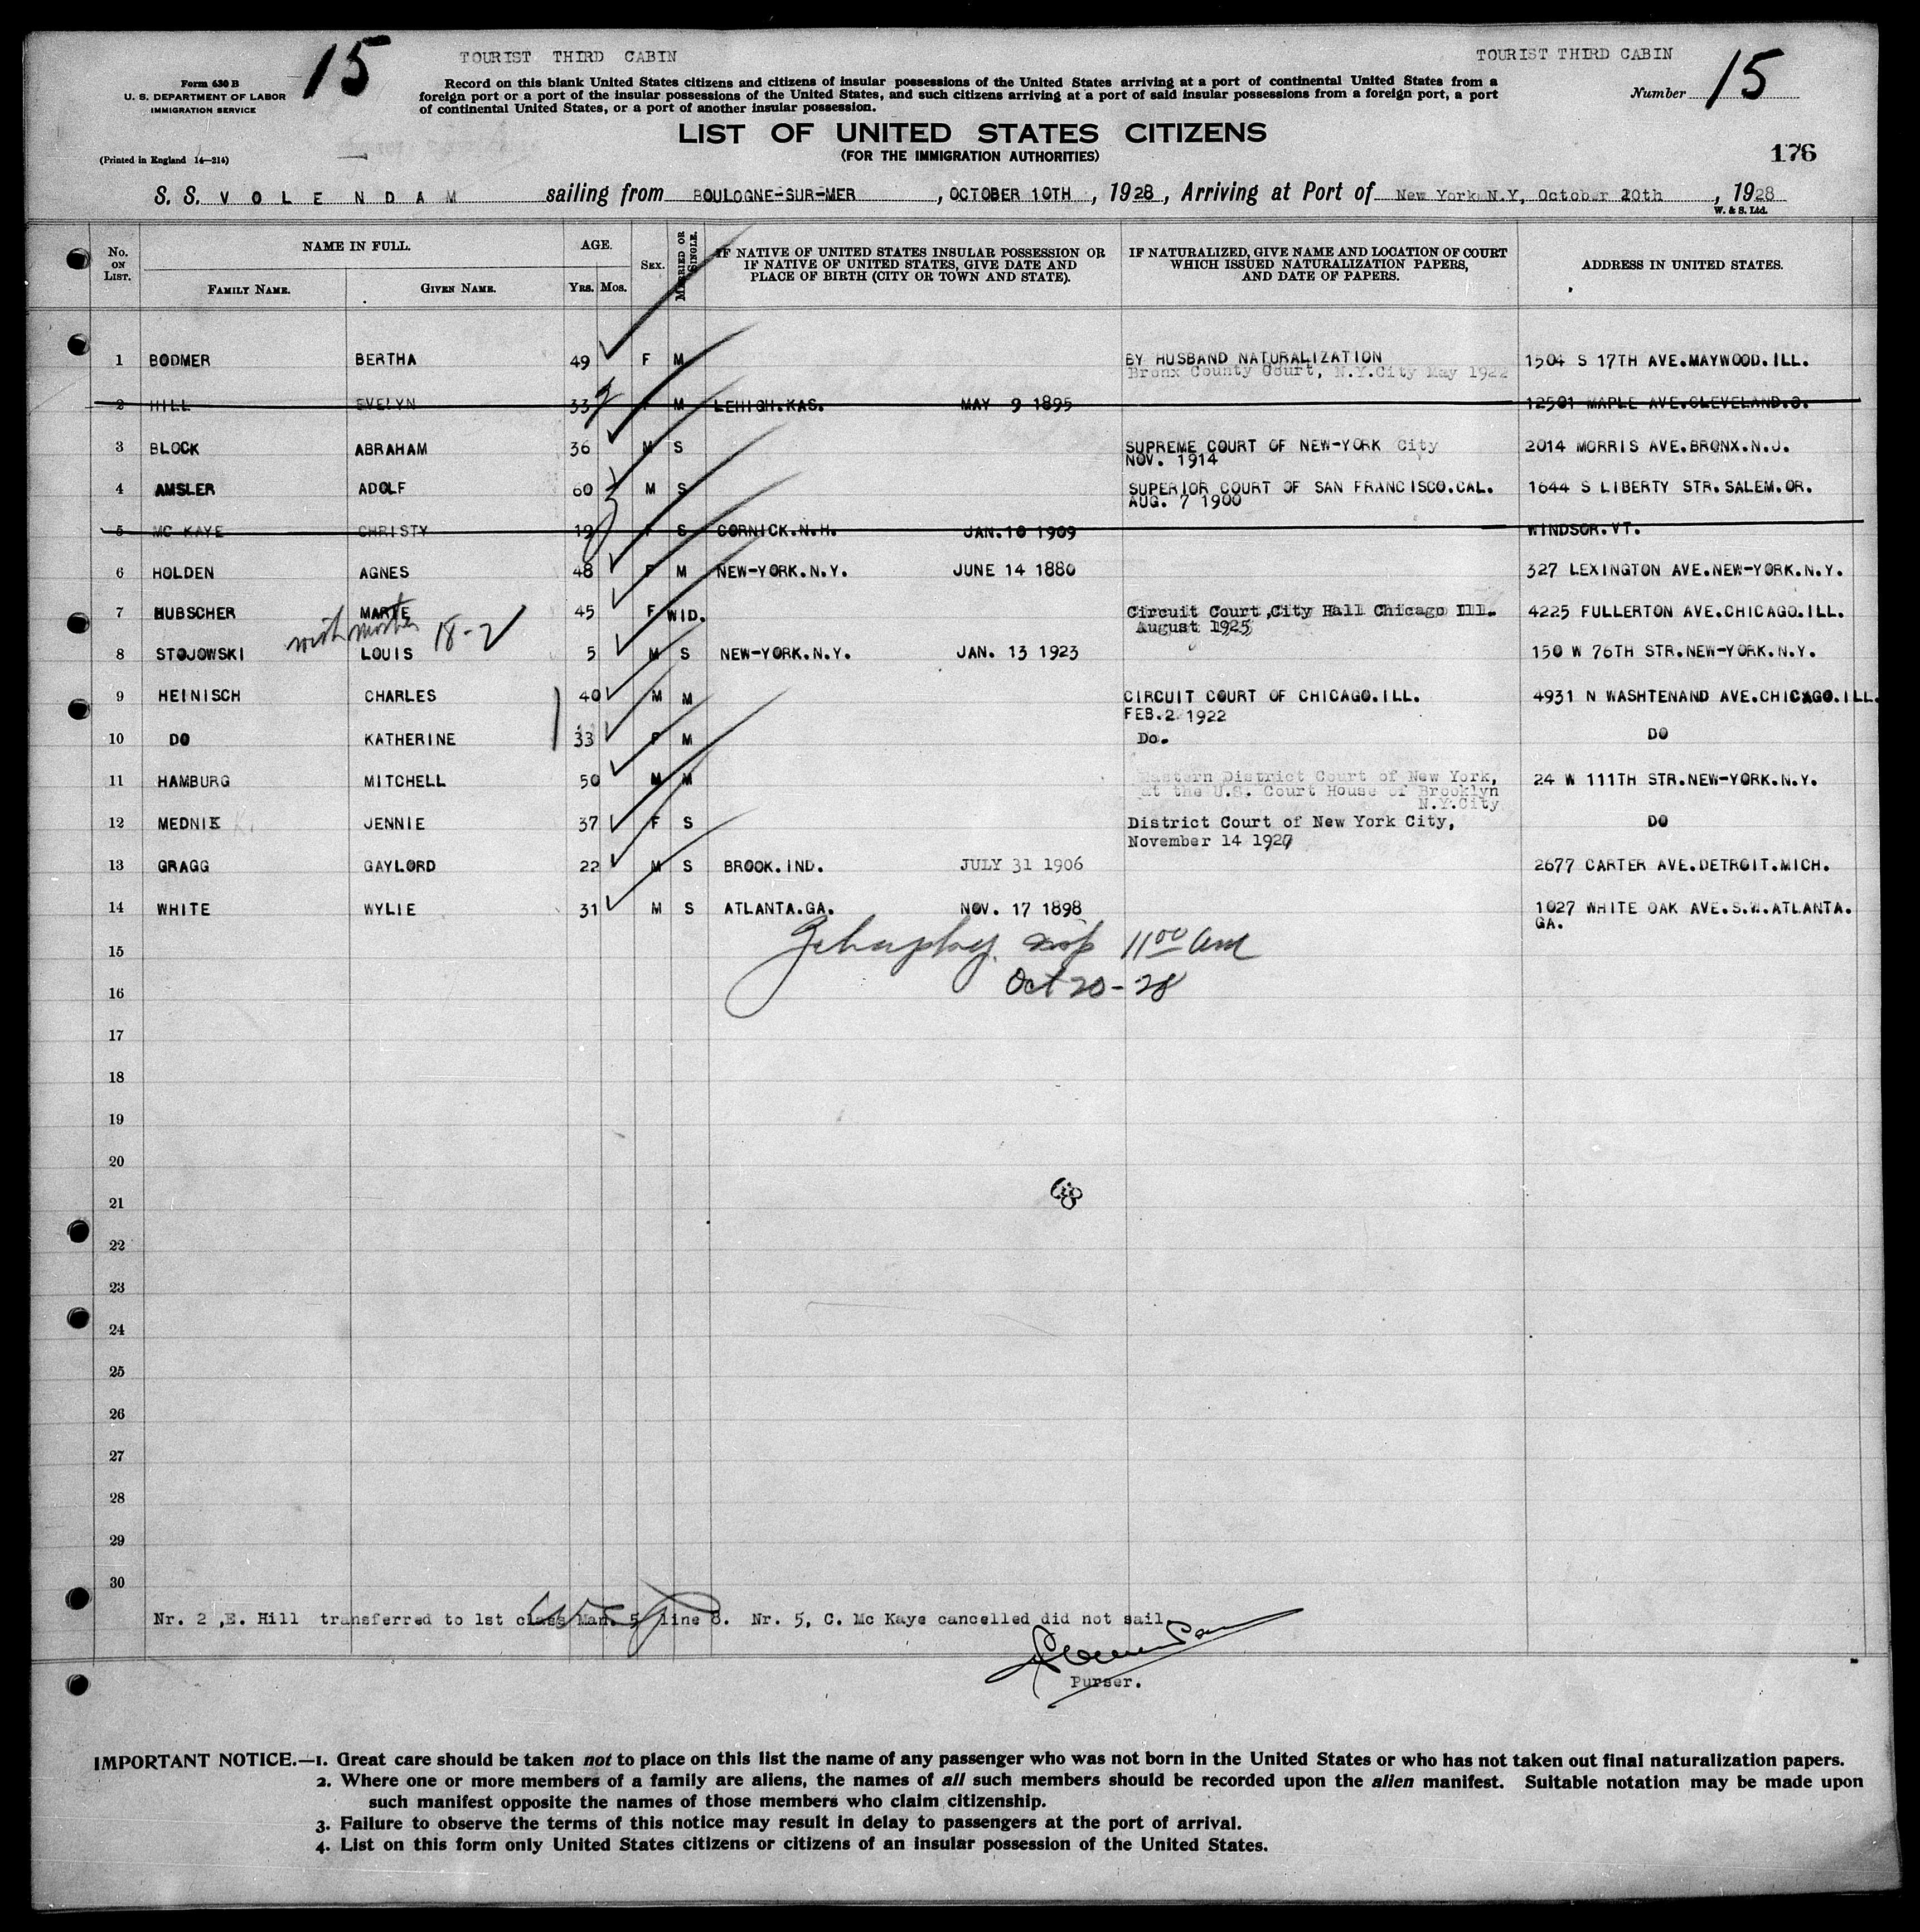 15
TOURIST THIRD CABIN
TOURIST THIRD CABIN
15
Form 630 B
U. S. DEPARTMENT OF LABOR
IMMIGRATION SERVICE
(Printed in England 14—214)
Record on this blank United States citizens and citizens of insular possessions of the United States arriving at a port of continental United States from a
foreign port or a port of the insular possessions of the United States, and such citizens arriving at a port of said insular possessions from a foreign port, a port
of continental United States, or a port of another insular possession.
Number
LIST OF UNITED STATES CITIZENS
(FOR THE IMMIGRATION AUTHORITIES)
176
S. S. VOLENDAM, sailing from BOULOGNE-SUR-MER, OCTOBER 10TH, 1928, Arriving at Port of New York N.Y, October 20th, 1928
W. & S. Ltd.
No. ON LIST. NAME IN FULL. FAMILY NAME. GIVEN NAME. AGE. Yrs. Mos. SEX. MARRIED OR SINGLE. IF NATIVE OF UNITED STATES INSULAR POSSESSION OR IF NATIVE OF UNITED STATES, GIVE DATE AND PLACE OF BIRTH (CITY OR TOWN AND STATE). IF NATURALIZED, GIVE NAME AND LOCATION OF COURT WHICH ISSUED NATURALIZATION PAPERS, AND DATE OF PAPERS. ADDRESS IN UNITED STATES.
1 BODMER BERTHA 49 F M BY HUSBAND NATURALIZATION 1504 S 17TH AVE.MAYWOOD.ILL.
Bronx County Court, N.Y.City May 1922
2 HILL EVELYN 33 F M LEHIGH.KAS. MAY 9 1895 12501 MAPLE AVE.CLEVELAND.O.
3 BLOCK ABRAHAM 36 M S SUPREME COURT OF NEW-YORK City 2014 MORRIS AVE.BRONX.N.J.
NOV. 1914
4 AMSLER ADOLF 60 M S SUPERIOR COURT OF SAN FRANCISCO.CAL. 1644 S LIBERTY STR.SALEM.OR.
AUG. 7 1900
5 MC KAYE CHRISTY 19 F S CORNICK.N.H. JAN.10 1909 WINDSOR.VT.
6 HOLDEN AGNES 48 F M NEW-YORK.N.Y. JUNE 14 1880 327 LEXINGTON AVE.NEW-YORK.N.Y.
7 HUBSCHER MARIE 45 F WID. Circuit Court ,City Hall Chicago Ill. 4225 FULLERTON AVE.CHICAGO.ILL.
August 1925
with mother 18-2
8 STOJOWSKI LOUIS 5 M S NEW-YORK.N.Y. JAN. 13 1923 150 W 76TH STR.NEW-YORK.N.Y.
9 HEINISCH CHARLES 40 M M CIRCUIT COURT OF CHICAGO.ILL. 4931 N WASHTENAND AVE.CHICAGO.ILL.
FEB.2 1922
10 DO KATHERINE 33 F M Do. DO
11 HAMBURG MITCHELL 50 M M Eastern District Court of New York, 24 W 111TH STR.NEW-YORK.N.Y.
at the U.S. Court House of Brooklyn
N.Y.City
12 MEDNIK K. JENNIE 37 F S District Court of New York City, DO
November 14 1927
13 GRAGG GAYLORD 22 M S BROOK.IND. JULY 31 1906 2677 CARTER AVE.DETROIT.MICH.
14 WHITE WYLIE 31 M S ATLANTA.GA. NOV. 17 1898 1027 WHITE OAK AVE.S.W.ATLANTA.
GA.
15 11 00 am
16 Oct 20-28
17
18
19
20
21
22
23
24
25
26
27
28
29
30
Nr. 2 ,E. Hill transferred to 1st class Man. 5 line 8. Nr. 5, C. Mc Kaye cancelled did not sail
Purser.
IMPORTANT NOTICE.—1. Great care should be taken not to place on this list the name of any passenger who was not born in the United States or who has not taken out final naturalization papers.
2. Where one or more members of a family are aliens, the names of all such members should be recorded upon the alien manifest. Suitable notation may be made upon
such manifest opposite the names of those members who claim citizenship.
3. Failure to observe the terms of this notice may result in delay to passengers at the port of arrival.
4. List on this form only United States citizens or citizens of an insular possession of the United States.